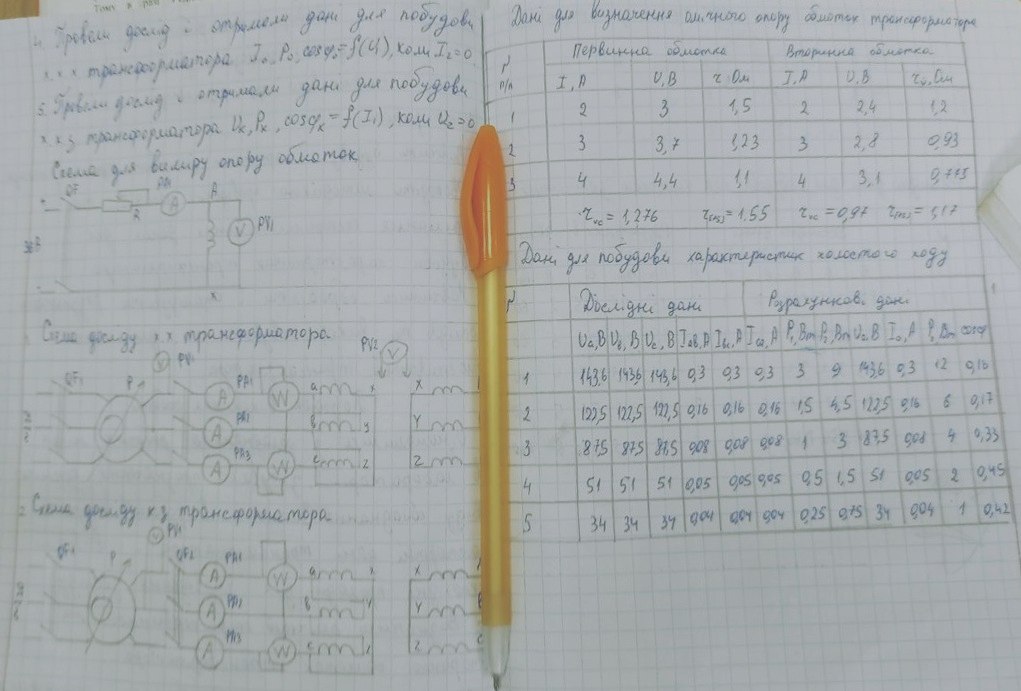 4. Провели дослід і отримали дані для побудови
х.х.х трансформатора I₀, P₀, cosφ₀=f(U₁), коли I₂=0
5. Провели дослід і отримали дані для побудови
х.к.з трансформатора Uк, Pк, cosφк=f(I₁), коли U₂=0
Схема для виміру опору обмоток
QF PA1 A
R A V PV1
x
Схема досліду х.х трансформатора
PV1 PV2
V V
QF1 P PA1 A W a x X
PA2 A в y Y
PA3 A W c z Z
2 Схема досліду к.з трансформатора
PV1
V
QF1 P QF2 PA1 A W a x X
PA2 A в y Y
PA3 A W c z Z
Дані для визначення омічного опору обмоток трансформатора
Первинна обмотка Вторинна обмотка
п/п I, A U, B r, Ом I, A U, B r₀, Ом
1 2 3 1,5 2 2,4 1,2
2 3 3,7 1,23 3 2,8 0,93
3 4 4,4 1,1 4 3,1 0,775
rхс = 1,276 r = 1,55 rхс = 0,97 r = 1,17
Дані для побудови характеристик холостого ходу
Дослідні дані Розрахункові дані
Uа, B Uв, B Uс, B Iав, A Iвс, A Iса, A P₁, Вт P₂, Вт U₀, B I₀, A P, Вт cosφ
1 143,6 143,6 143,6 0,3 0,3 0,3 3 9 143,6 0,3 12 0,16
2 122,5 122,5 122,5 0,16 0,16 0,16 1,5 4,5 122,5 0,16 6 0,17
3 87,5 87,5 87,5 0,08 0,08 0,08 1 3 87,5 0,08 4 0,33
4 51 51 51 0,05 0,05 0,05 0,5 1,5 51 0,05 2 0,45
5 34 34 34 0,04 0,04 0,04 0,25 0,75 34 0,04 1 0,42